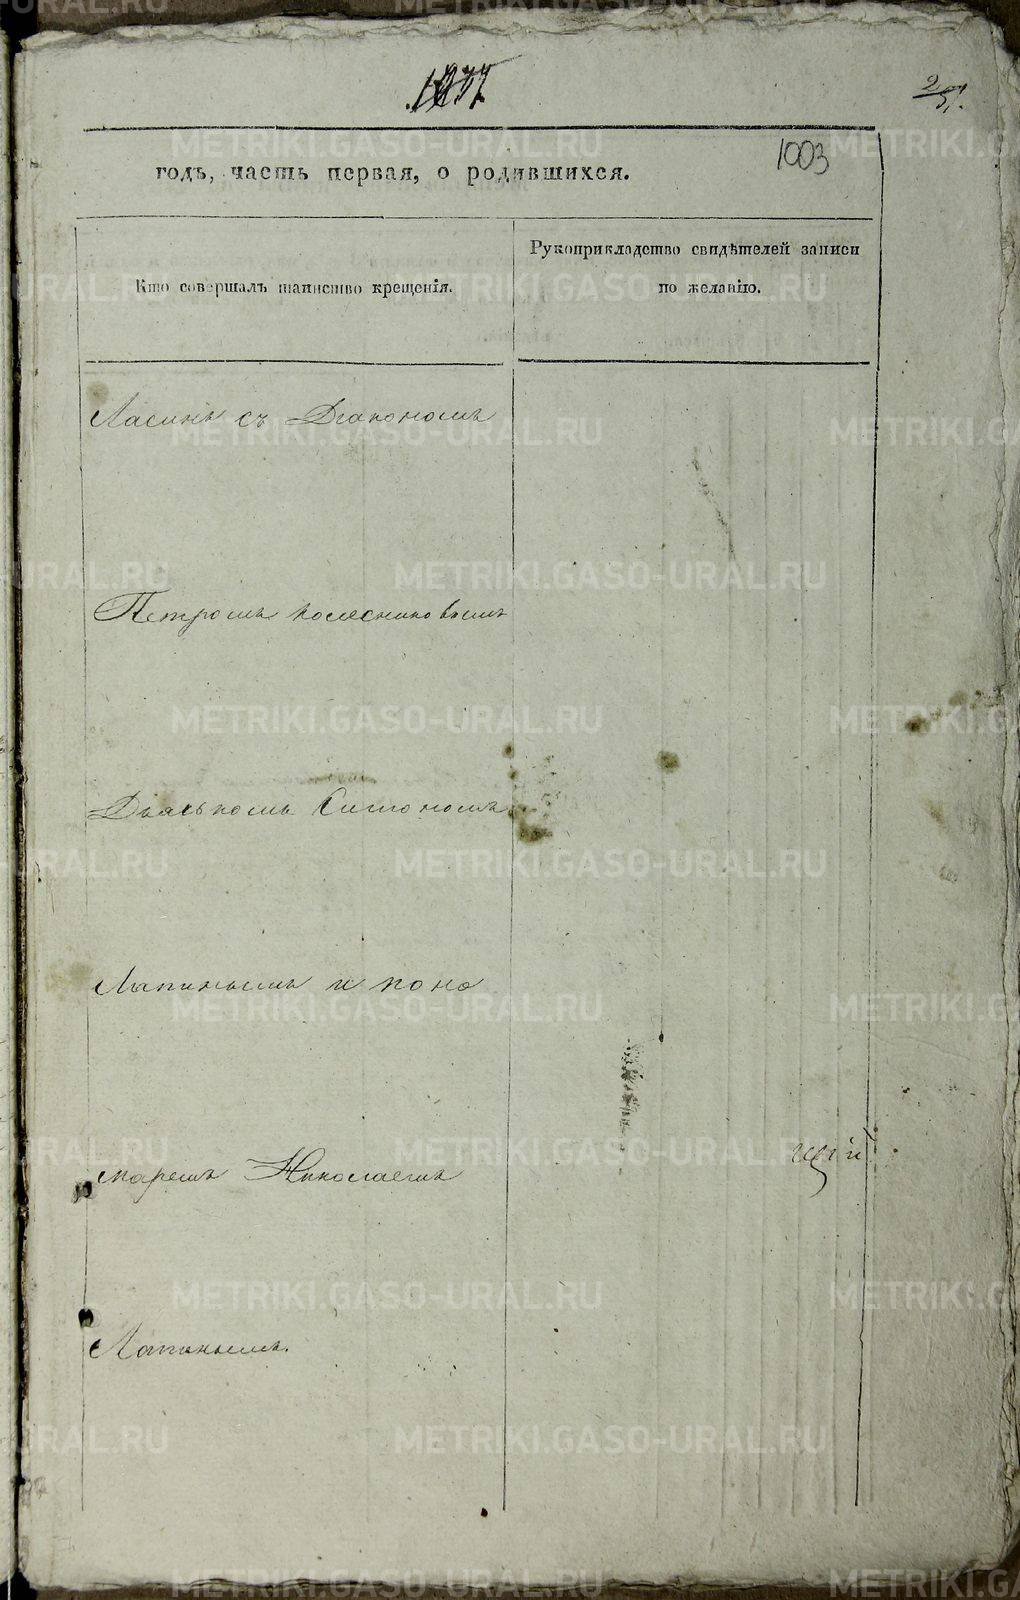 2/51.
1003
годъ, часть первая, о родившихся.
Кто совершалъ таинство крещенія.
Рукоприкладство свидѣтелей записи
по желанію.
съ Діакономъ
Петромъ Колесниковымъ
Дьячкомъ Симономъ
Лапинымъ и поно
маремъ Николаемъ
Лапинымъ.
METRIKI.GASO-URAL.RU